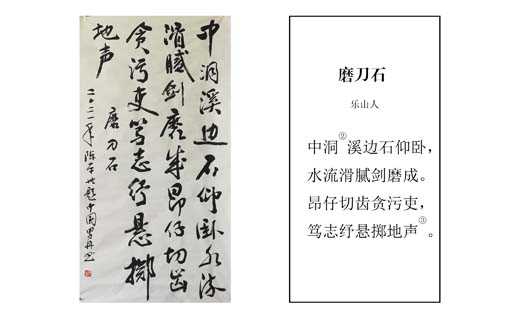 中洞溪边石仰卧水流
滑腻剑磨成昂仔切齿
贪污吏笃志纾悬掷
地声
磨刀石
二〇二一年
磨刀石
乐山人
中洞②溪边石仰卧，
水流滑腻剑磨成。
昂仔切齿贪污吏，
笃志纾悬掷地声③。